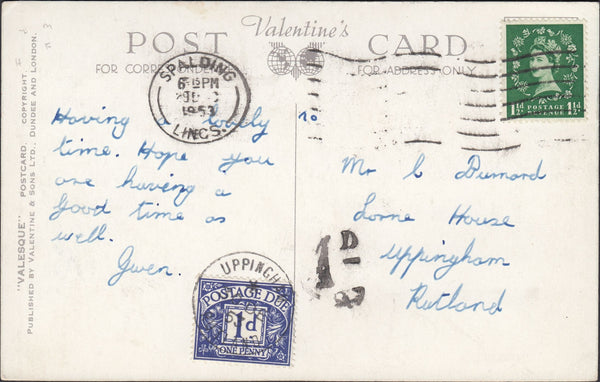 Valentine's
POST CARD
FOR CORRESPONDENCE
FOR ADDRESS ONLY
SPALDING
PM
1953
LINCS.
1½d 1½d
POSTAGE
REVENUE
Having a lovely
time. Hope you
are having a
good time as
well.
Gwen.
To
Mr L Dumord
Lorne House
Uppingham
Rutland
1D
UPPINGH
POSTAGE DUE
1d
ONE PENNY
"VALESQUE" POSTCARD. COPYRIGHT
PUBLISHED BY VALENTINE & SONS LTD., DUNDEE AND LONDON.